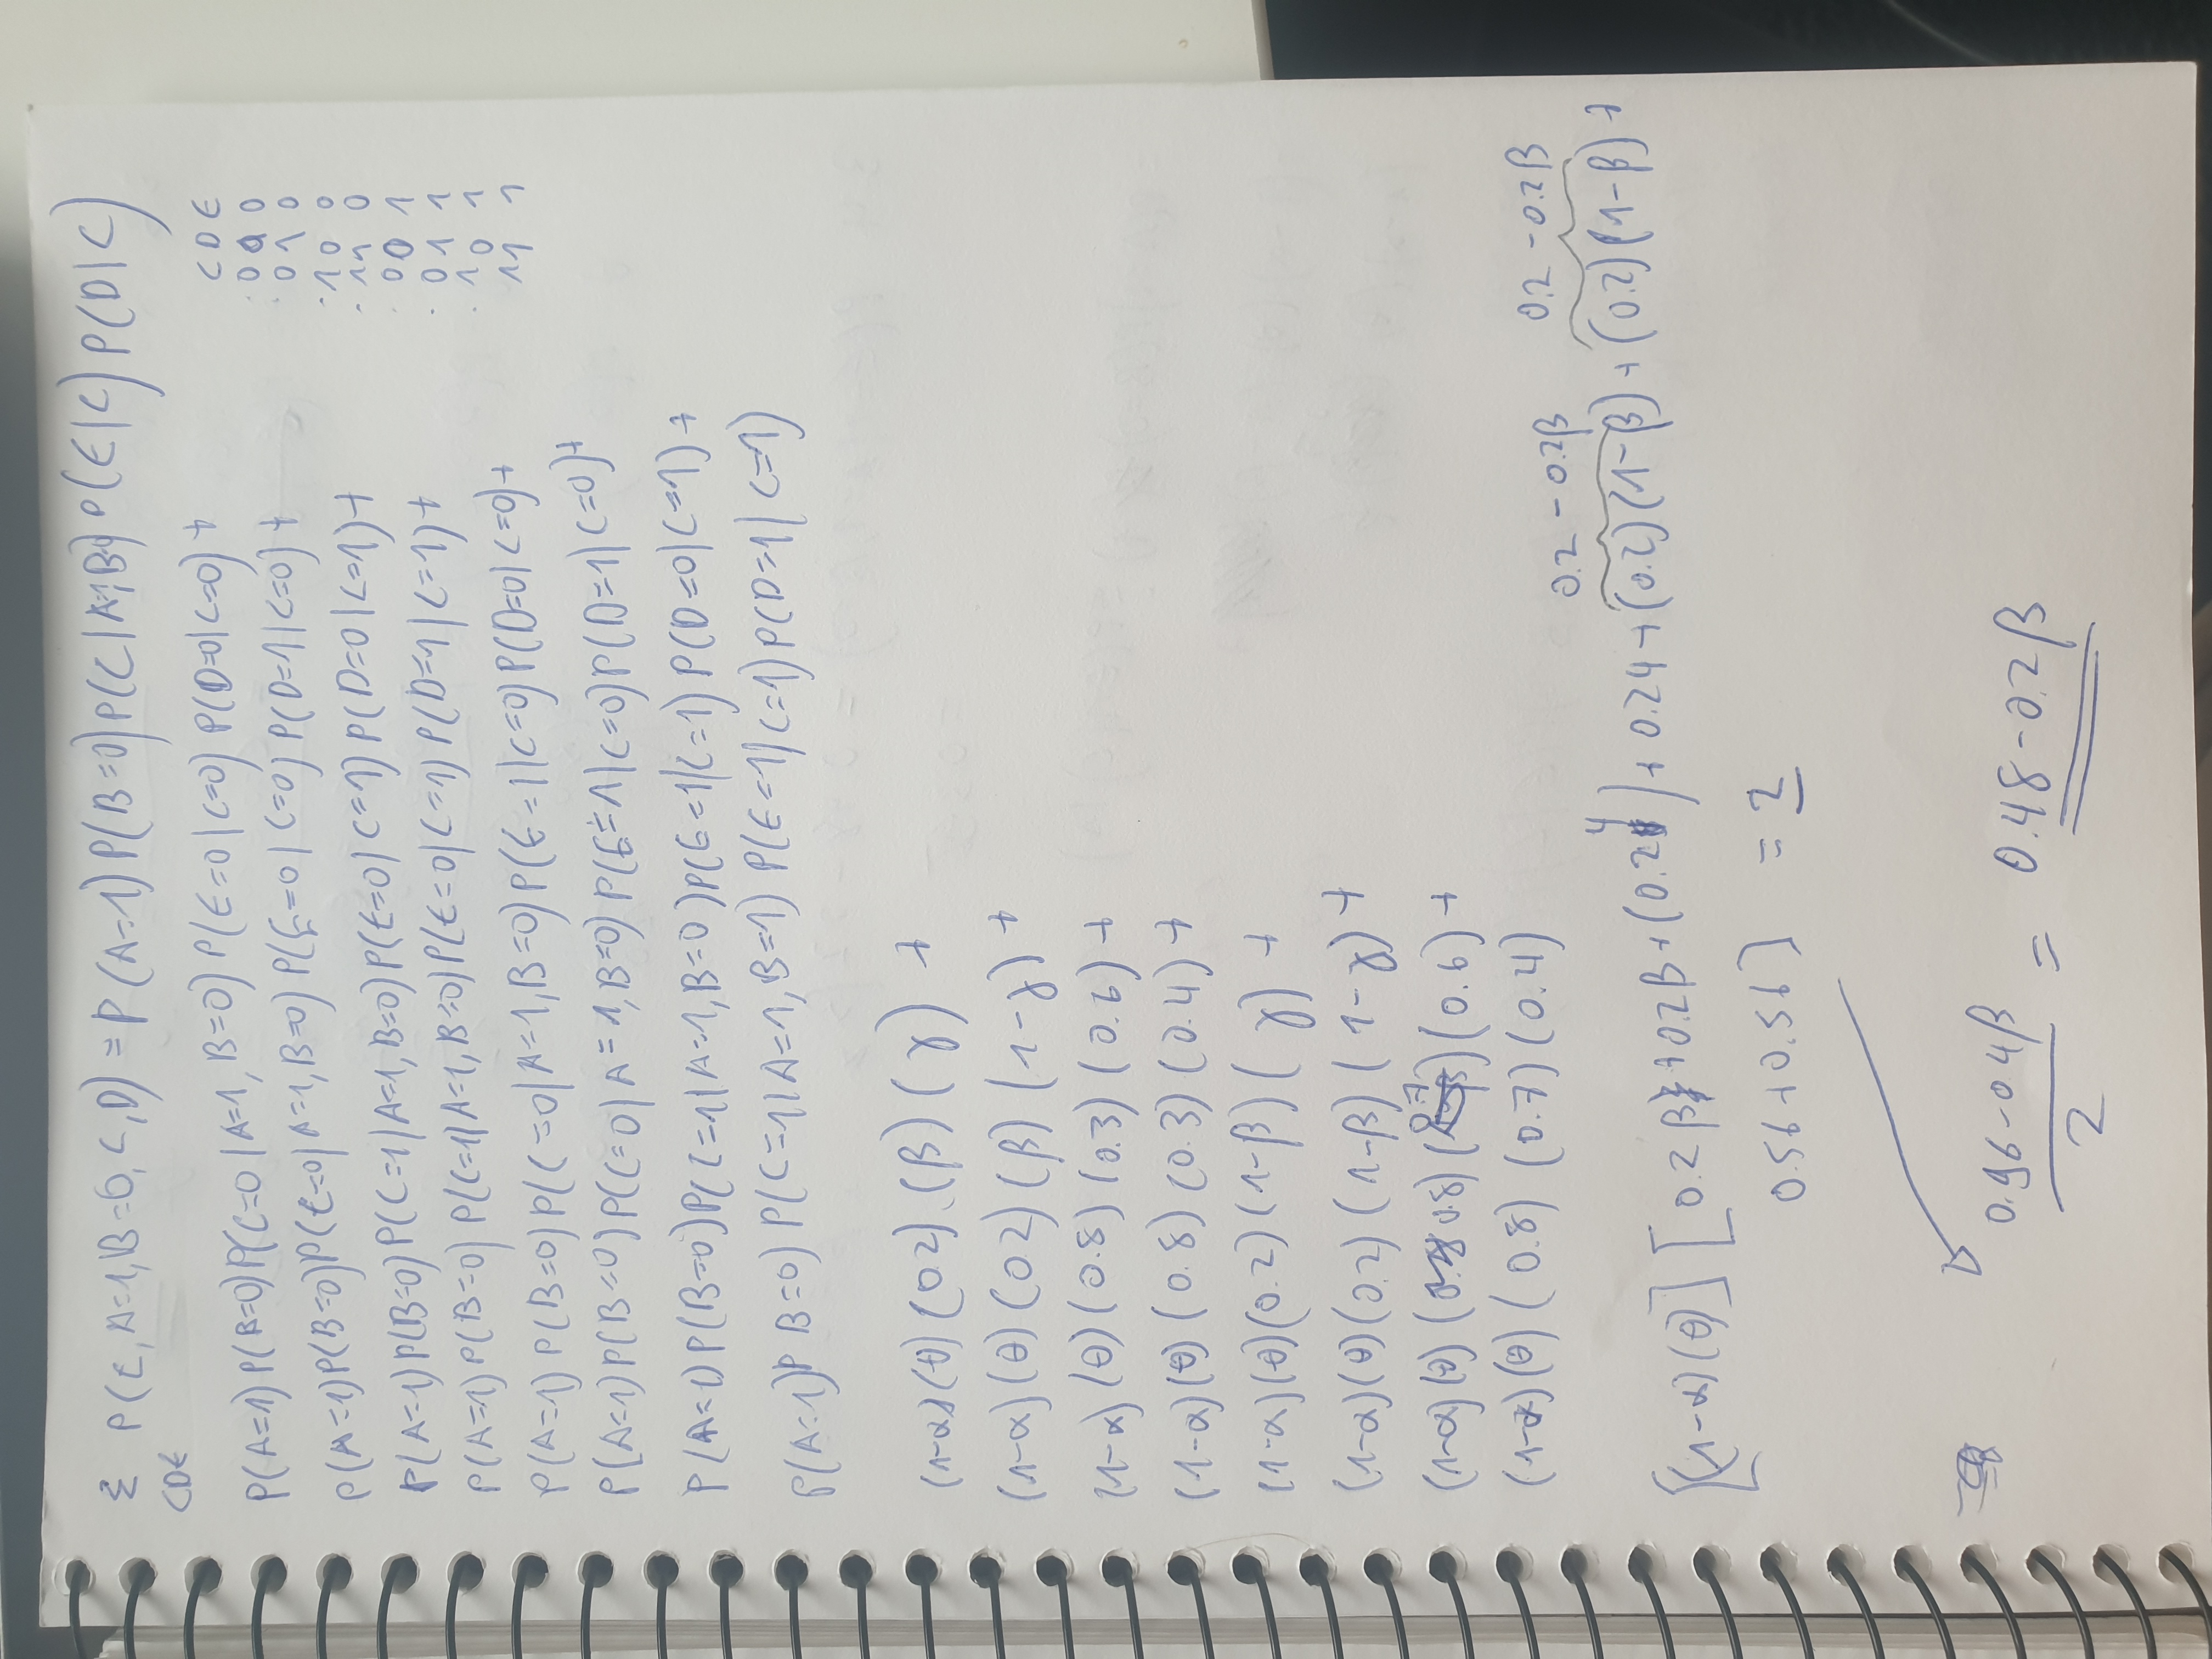 Σ P(E, A=1, B=0, C, D) = P(A=1) P(B=0) P(C|A=1, B=0) P(E|C) P(D|C)
CDE
P(A=1) P(B=0) P(C=0|A=1, B=0) P(E=0|C=0) P(D=0|C=0) +
P(A=1) P(B=0) P(C=0|A=1, B=0) P(E=0|C=0) P(D=1|C=0) +
P(A=1) P(B=0) P(C=1|A=1, B=0) P(E=0|C=1) P(D=0|C=1) +
P(A=1) P(B=0) P(C=1|A=1, B=0) P(E=0|C=1) P(D=1|C=1) +
P(A=1) P(B=0) P(C=0|A=1, B=0) P(E=1|C=0) P(D=0|C=0) +
P(A=1) P(B=0) P(C=0|A=1, B=0) P(E=1|C=0) P(D=1|C=0) +
P(A=1) P(B=0) P(C=1|A=1, B=0) P(E=1|C=1) P(D=0|C=1) +
P(A=1) P B=0) P(C=1|A=1, B=1) P(E=1|C=1) P(D=1|C=1)
C D E
0 0 0
0 1 0
1 0 0
1 1 0
0 0 1
0 1 1
1 0 1
1 1 1
(1-α) (θ) (0.2) (β) (γ) +
(1-α) (θ) (0.2) (β) (1-γ) +
(1-α) (θ) (0.8) (0.3) (0.6) +
(1-α) (θ) (0.8) (0.3) (0.4) +
(1-α) (θ) (0.2) (1-β) (γ) +
(1-α) (θ) (0.2) (1-β) (1-γ) +
(1-α) (θ) (0.8) (0.7) (0.6) +
(1-α) (θ) (0.8) (0.7) (0.4)
0.2 - 0.2β 0.2 - 0.2β
[(1-α) (θ)] [0.2β + 0.2β + (0.24) + 0.24 + (0.2)(1-β) + (0.2)(1-β) +
0.56 + 0.56] = 2
0.96 - 0.4β
2
= 0.48 - 0.2β